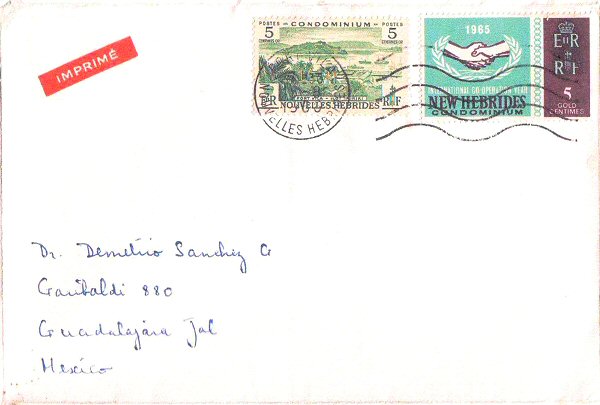 IMPRIMÉ
POSTES CONDOMINIUM POSTES
5 5
CENTIMES OR CENTIMES OR
RF
NOUVELLES HEBRIDES
NOUVELLES HEBRIDES
1965
INTERNATIONAL CO-OPERATION YEAR
NEW HEBRIDES
CONDOMINIUM
E II R
RF
5
GOLD
CENTIMES
Dr. Demetrio Sanchez G
Garibaldi 880
Guadalajara Jal
Mexico